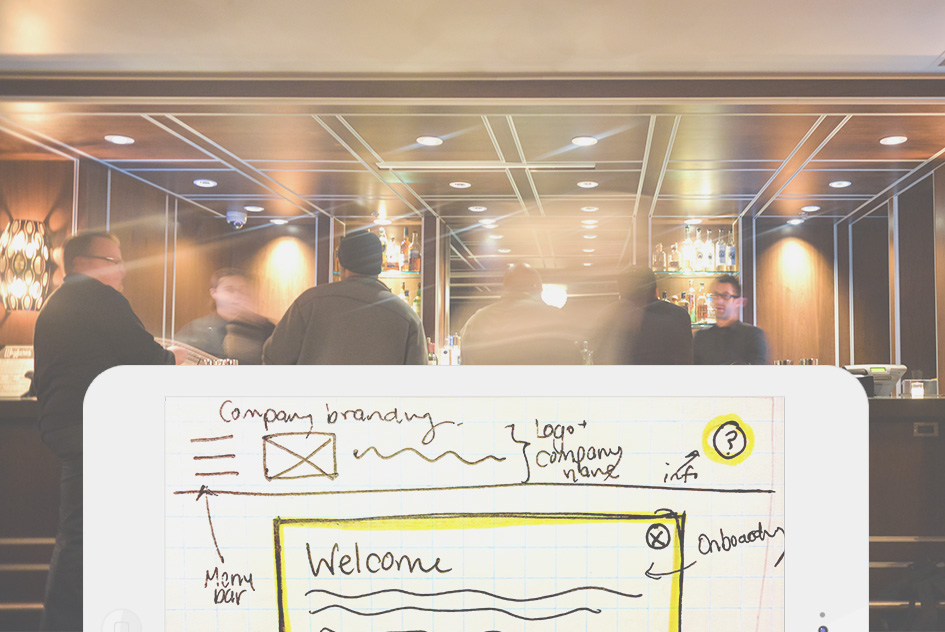 Company branding.
Logo +
Company
name
info
?
Menu
bar
Welcome
Onboarding